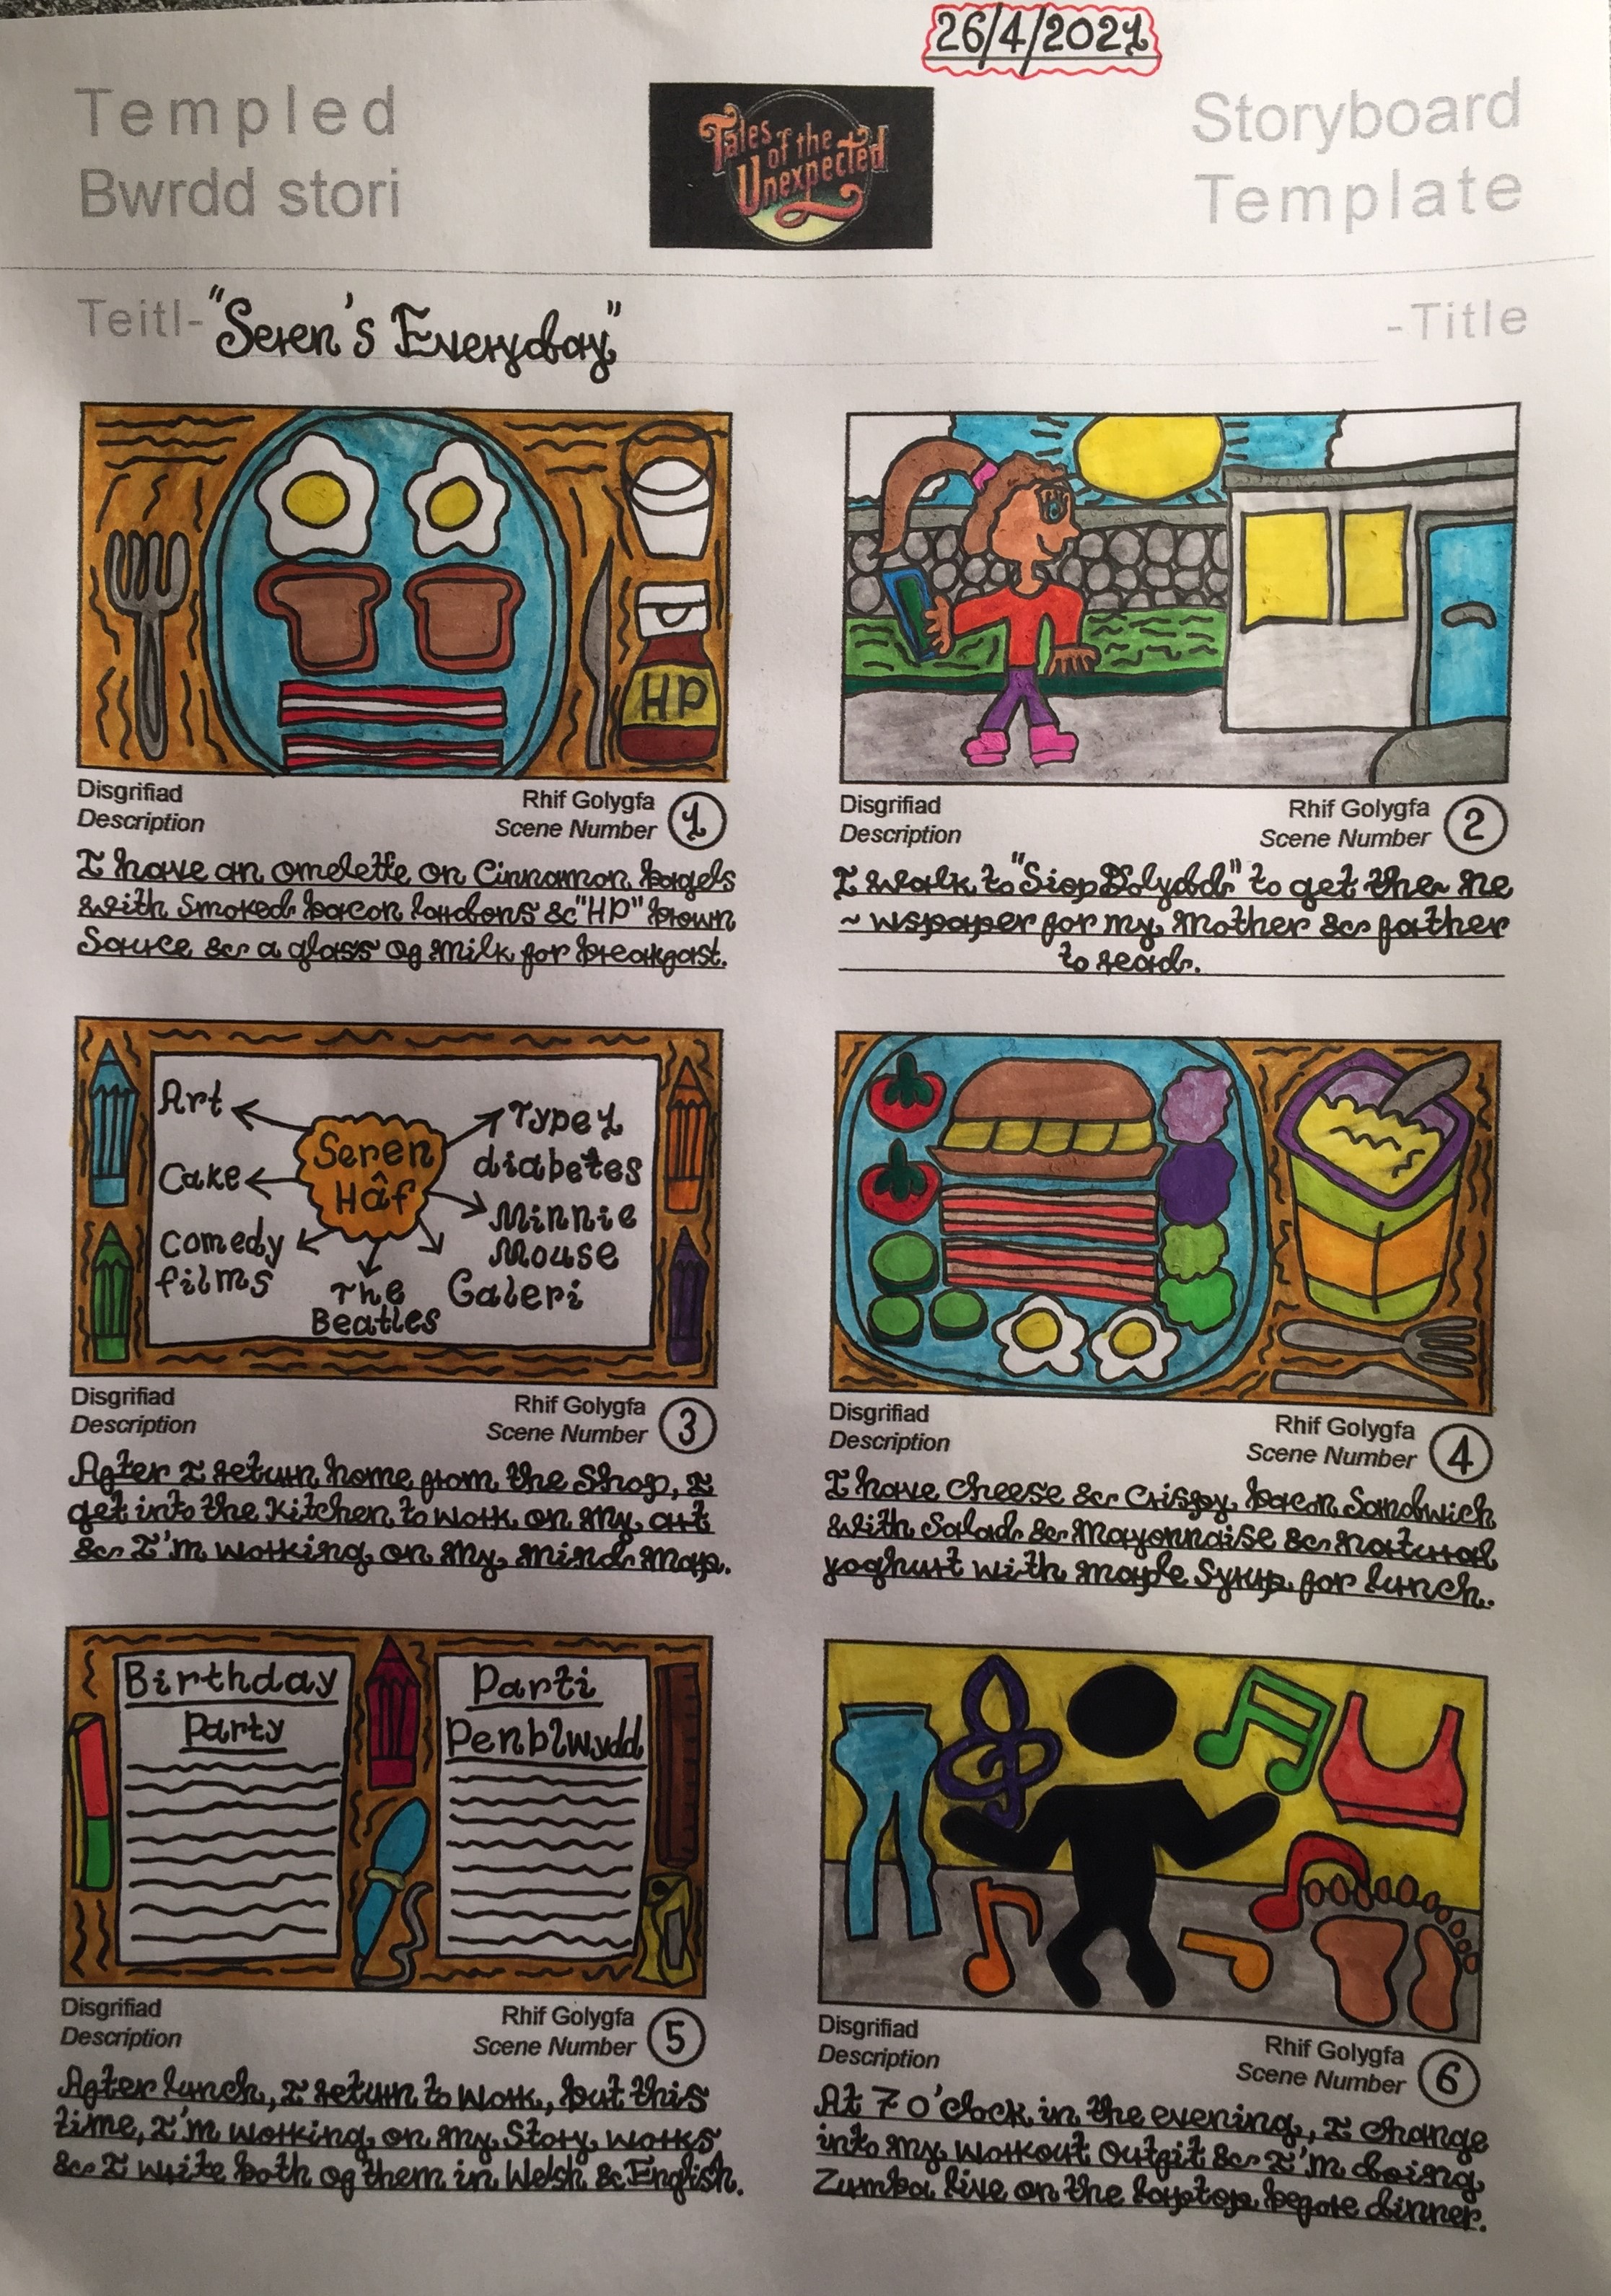 26/4/2021
Templed
Bwrdd stori
Tales
of the
Unexpected
Storyboard
Template
Teitl- "Seren's Everyday" -Title
HP
Disgrifiad
Description
Rhif Golygfa
Scene Number 1
I have an omelette on Cinnamon bagels
with smoked bacon lardons & "HP" brown
Sauce & a glass of milk for breakfast.
Disgrifiad
Description
Rhif Golygfa
Scene Number 2
I walk to "Siop Dolydd" to get the ~ ne
~ wspaper for my mother & father
to read.
Art
Cake
comedy
films
Seren
Hâf
The
Beatles
Type 1
diabetes
Minnie
Mouse
Galeri
Disgrifiad
Description
Rhif Golygfa
Scene Number 3
After I return home from the shop, I
get into the kitchen to work on my art
& I'm working on my mind map.
Disgrifiad
Description
Rhif Golygfa
Scene Number 4
I have cheese & crispy bacon Sandwich
with Salad & mayonnaise & natural
yoghurt with maple syrup for lunch.
Birthday
Party
Parti
Penblwydd
Disgrifiad
Description
Rhif Golygfa
Scene Number 5
After lunch, I return to work, but this
time, I'm working on my Story works
& I write both of them in Welsh & English.
Disgrifiad
Description
Rhif Golygfa
Scene Number 6
At 7 o'clock in the evening, I change
into my workout outfit & I'm doing
Zumba live on the laptop before dinner.